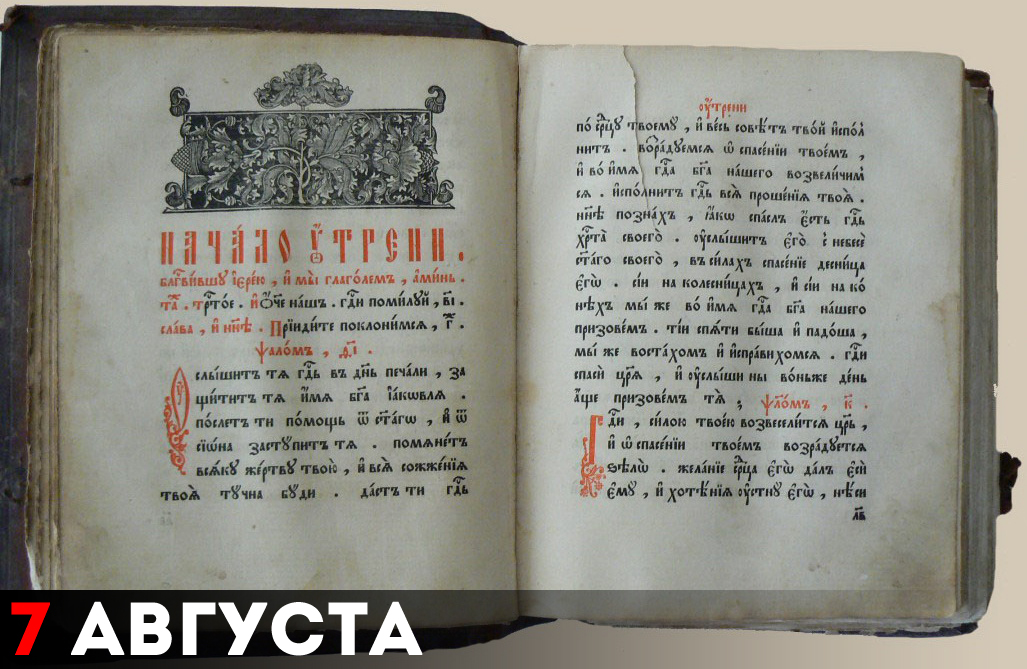 НАЧА́ЛО ОУ҆́ТРЕНИ .
Бл҃гвⷭи́вшу і҆ере́ю , и҆ мы̀ глаго́лемъ , а҆ми́нь .
Та́ . трⷭто́е . и҆ Ѻ҆́ч҃е на́шъ . гдⷭи поми́луй , в҃і .
сла́ва , и҆ нн҃ѣ . Прїиди́те поклони́мся , г҃ .
ѱало́мъ , ѳ҃і .
Оу҆слы́шитъ тѧ̀ гдⷭь въ дн҃ь печа́ли , за
щи́титъ тѧ̀ и҆́мѧ бг҃а і҆а́кѡвлѧ .
по́слетъ ти по́мощь ѿ ст҃а́гѡ , и҆ ѿ
сїѡ́на засту́питъ тѧ . помѧне́тъ
всѧ́ку же́ртву твою̀ , и҆ всѧ̀ сожже́нїѧ
твоѧ̀ ту́чна бу́ди . да́стъ ти гдⷭь
ѹ҆́трени
по срⷣцу твоему̀ , и҆ ве́сь совѣ́тъ тво́й и҆спо́л
нитъ . возра́дуемсѧ ѡ҆ спасе́нїи твое́мъ ,
и҆ во́ и҆мѧ гдⷭа бг҃а на́шего возвели́чим
сѧ . и҆спо́лнитъ гдⷭь всѧ̀ проше́нїѧ твоѧ̀ .
нн҃ѣ позна́хъ , ꙗ҆́кѡ спа́слъ є҆́сть гдⷭь
хрⷭта̀ своего̀ . ѹ҆слы́шитъ є҆го̀ с небесѐ
ст҃а́го своего̀ , въ си́лахъ спасе́нїе десни́ца
є҆гѡ̀ . сі́и на колесни́цахъ , и҆ сі́и на ко
не́хъ мы́ же во́ и҆мѧ гдⷭа бг҃а на́шего
призове́мъ . ті́и спѧ́ти бы́ша и҆ падо́ша ,
мы́ же воста́хомъ и҆ и҆спра́вихомсѧ . гдⷭи
спасѝ цр҃ѧ̀ , и҆ ѹ҆слы́ши ны̀ во́ньже де́нь
а҆́ще призове́мъ тѧ̀ ; ѱало́мъ , к҃ .
Гдⷭи , си́лою твое́ю возвесели́тсѧ цр҃ь ,
и҆ ѡ҆ спасе́нїи твое́мъ возра́дуетсѧ
ѕѣлѡ̀ . жела́нїе срⷣца є҆гѡ̀ да́лъ є҆сѝ
є҆му̀ , и҆ хотѣ́нїѧ ѹ҆стну̀ є҆гѡ̀ , нѣ́си
лв
7 АВГУСТА